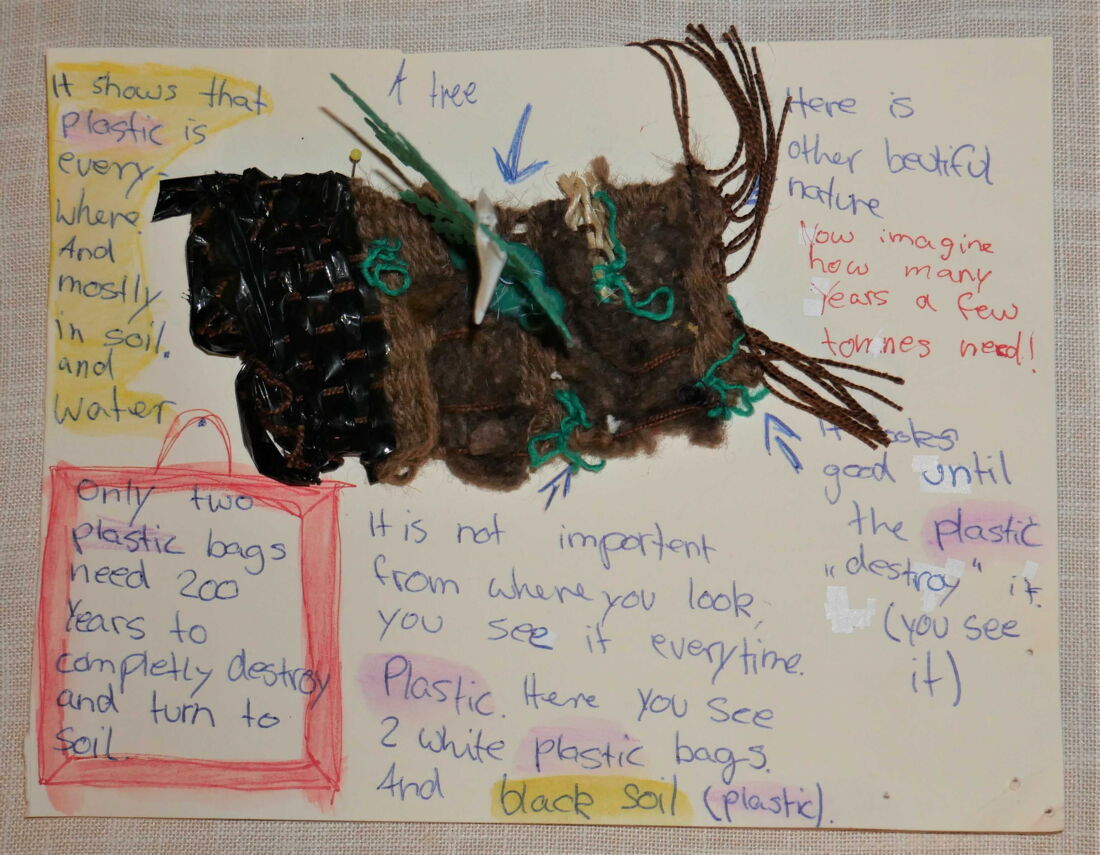 It shows that
plastic is
every-
where.
And
mostly
in soil.
and
water
A tree
Here is
other beutiful
nature
Now imagine
how many
years a few
tonnes need!
It looks
good until
the plastic
„destroy“ it.
(you see
it)
Only two
plastic bags
need 200
Years to
completly destroy
and turn to
soil.
It is not importent
from where you look,
you see it everytime.
Plastic. Here you see
2 white plastic bags.
And black soil (plastic).